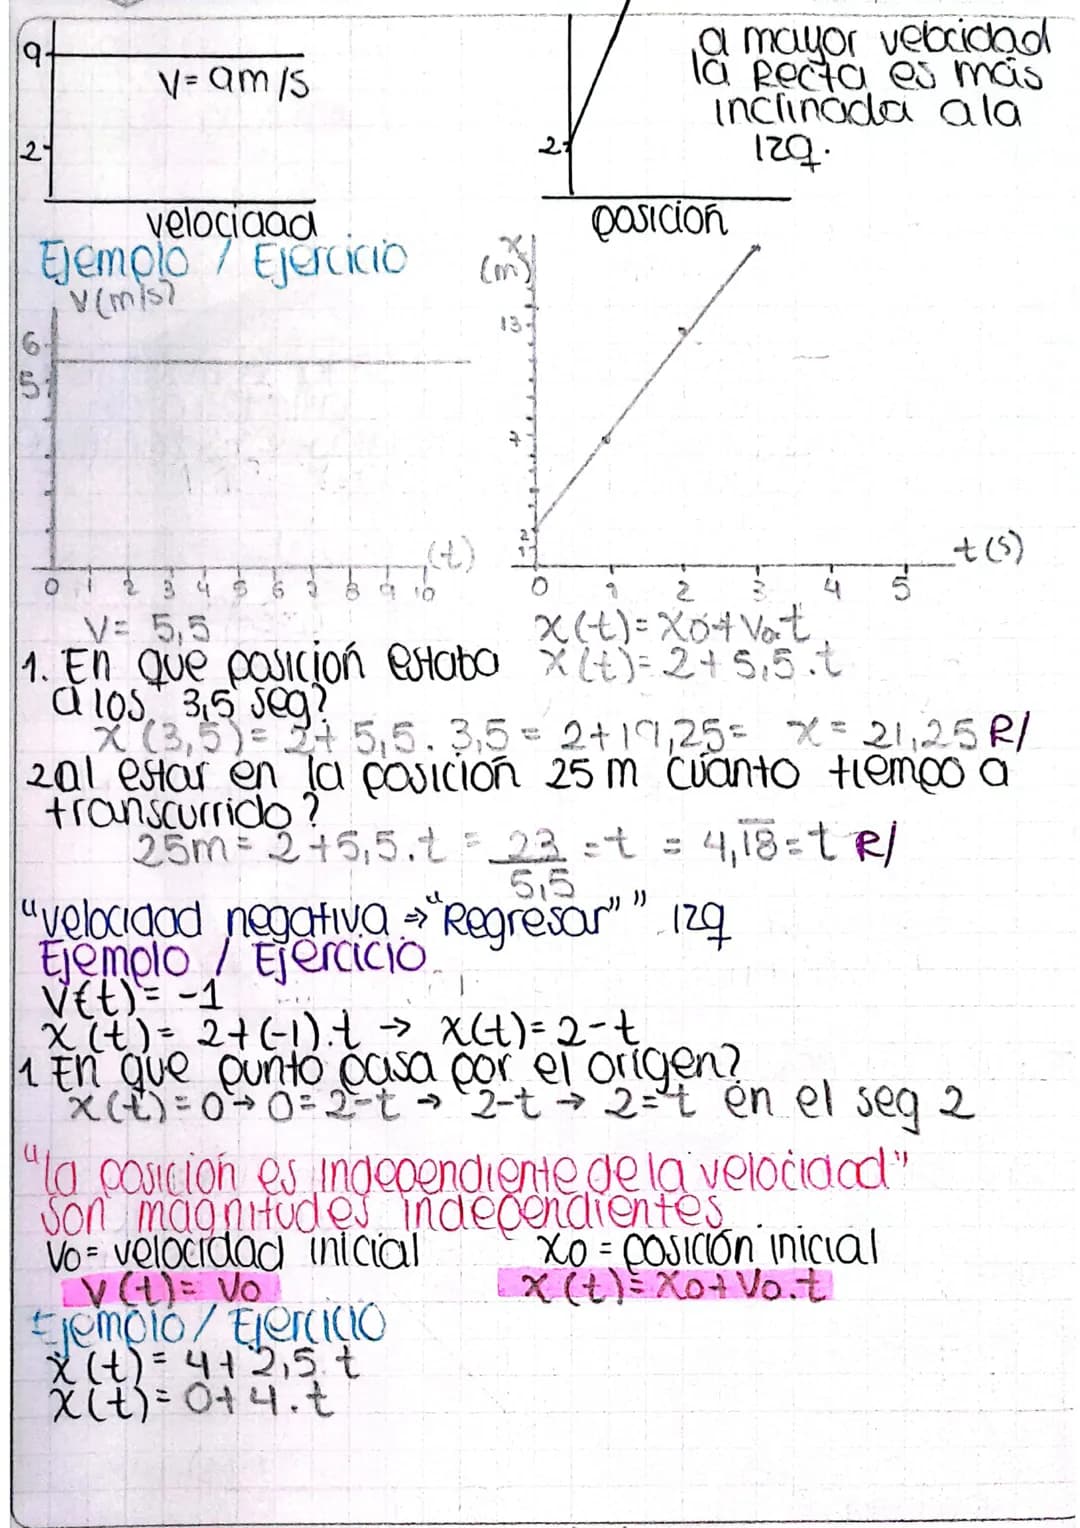 9
V= 9m/s
2
velocidad
2
posición
a mayor velocidad
la Recta es más
inclinada a la
izq.
Ejemplo / Ejercicio
V(m/s)
6
5
(t)
0 1 2 3 4 5 6 7 8 9 10
x
(m)
13
7
2
1
t(s)
0 1 2 3 4 5
V= 5,5
x(t)= Xo+Vo.t
x(t)= 2+5,5.t
1. En que posición estaba
a los 3,5 seg?
x(3,5)= 2+ 5,5. 3,5= 2+19,25= x= 21,25 R/
2 al estar en la posición 25 m cuanto tiempo a
transcurrido?
25m= 2+5,5.t = 23/5,5 =t = 4,18=t R/
"velocidad negativa → "Regresar" " izq
Ejemplo / Ejercicio
V(t)= -1
x(t)= 2+(-1).t → x(t)= 2-t
1 En que punto pasa por el origen?
x(t)=0→ 0= 2-t → 2-t → 2=t en el seg 2
"la posición es independiente de la velocidad"
son magnitudes independientes
Vo= velocidad inicial
Xo = posición inicial
V(t)= Vo
x(t)= Xo+Vo.t
Ejemplo/ Ejercicio
x(t)= 4+2,5.t
x(t)= 0+4.t